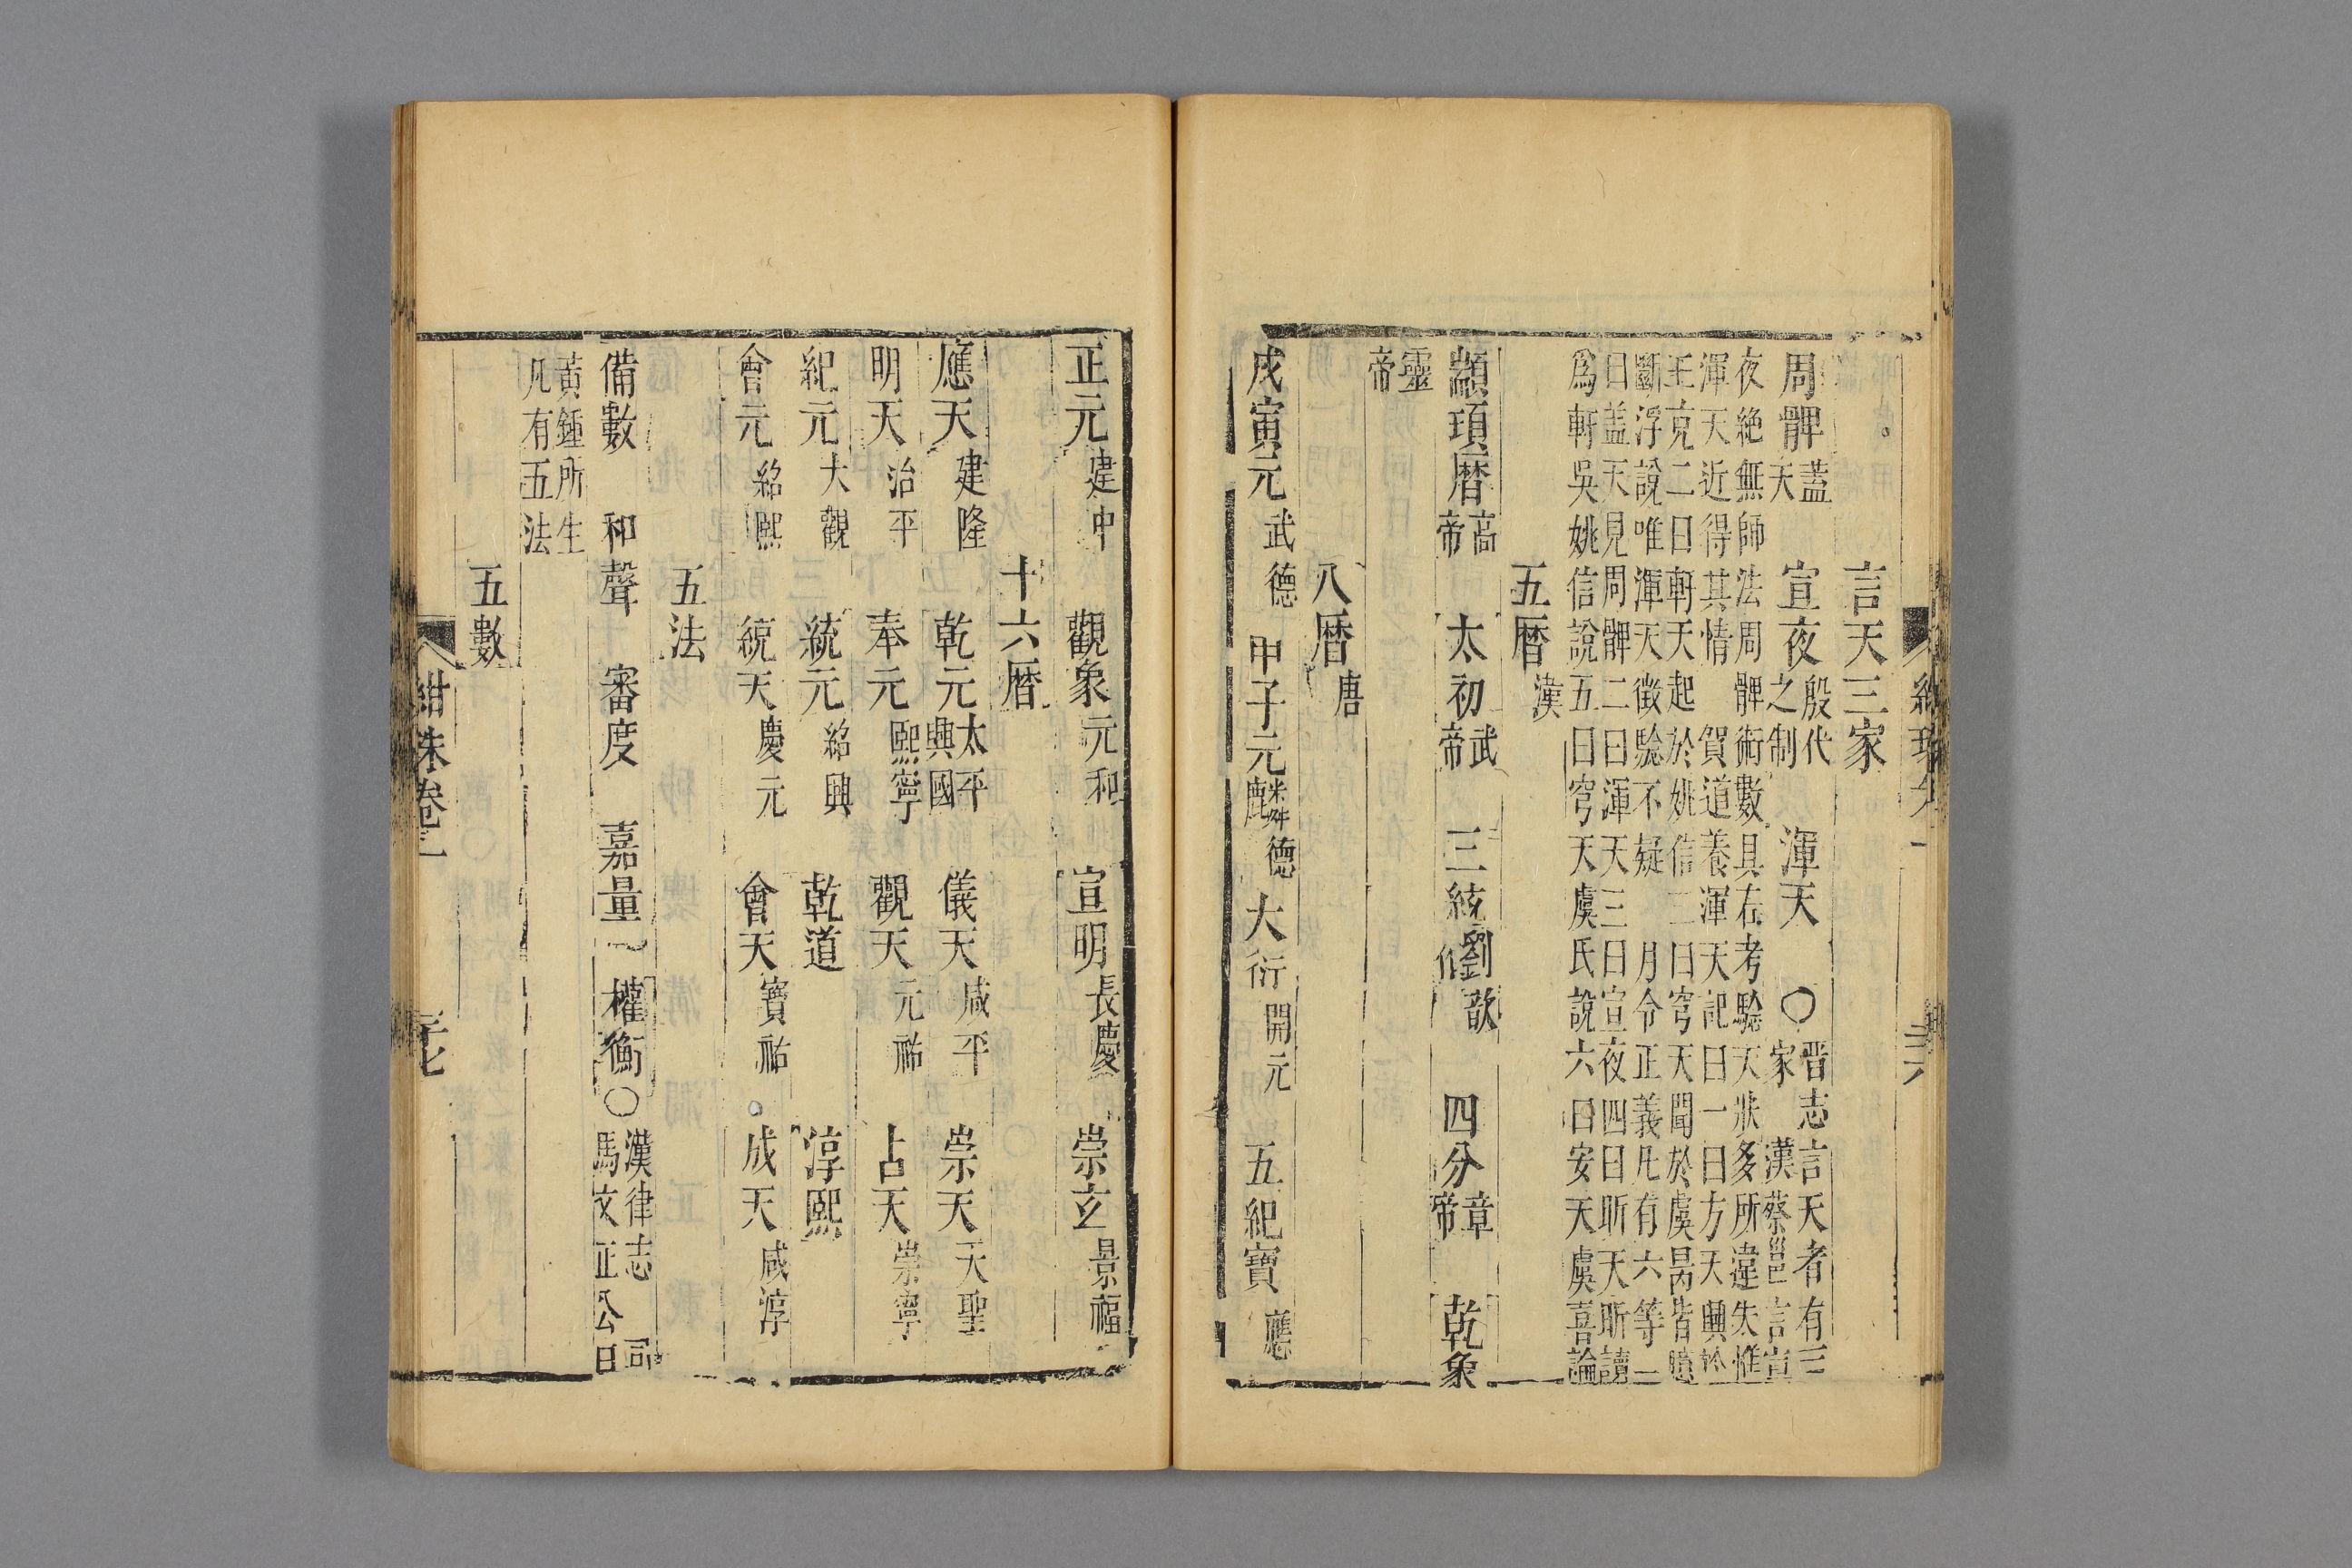 言天三家
周髀蓋天 宣夜殷代之制 渾天 〇晋志言天者有三家漢蔡邕言宣
夜絶無師法周髀術數具在考驗天狀多所違失惟
渾天近得其情 賀道養渾天記曰一曰方天興於
王充二曰軒天起於姚信三曰穹天聞於虞昺皆臆
斷浮說唯渾天徵驗不疑 月令正義凡有六等一
曰蓋天見周髀二曰渾天三曰宣夜四曰昕天昕讀
爲軒吳姚信說五曰穹天虞氏說六曰安天虞喜論
五曆漢
顓頊曆高帝 太初武帝 三統劉歆作 四分章帝 乾象
靈帝
八曆唐
戊寅元武德 甲子元麟德 大衍開元 五紀寶應
正元建中 觀象元和 宣明長慶 崇玄景福
十六曆
應天建隆 乾元太平興國 儀天咸平 崇天天聖
明天治平 奉元熙寧 觀天元祐 占天崇寧
紀元大觀 統元紹興 乾道 淳熙
會元紹熙 統天慶元 會天寶祐 成天咸淳
五法
備數 和聲 審度 嘉量 權衡〇漢律志 司馬文正公曰
黃鍾所生凡有五法
五數
紺珠卷一